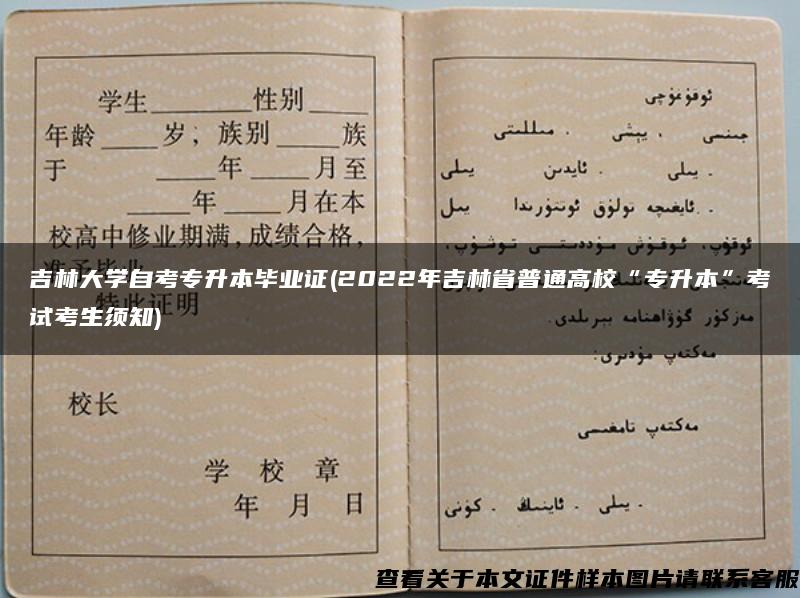 学生________性别____
年龄____岁；族别____族
于 ____年____月至
____年____月在本
校高中修业期满，成绩合格，
准予毕业
特此证明
校长
学 校 章
年 月 日
ئوقۇغۇچى
جىنسى . يېشى . مىللىتى
. يىلى . ئايدىن يىلى
. ئايغىچە تولۇق ئوتتۇرىدا يىل
ئوقۇپ، ئوقۇش مۇددىتىنى توشۇپ،
مەزكۇر گۇۋاھنامە بېرىلدى.
مەكتەپ مۇدىرى:
مەكتەپ تامغىسى
. يىلى . ئاينىڭ . كۈنى
吉林大学自考专升本毕业证(2022年吉林省普通高校“专升本”考
试考生须知)
查看关于本文证件样本图片请联系客服